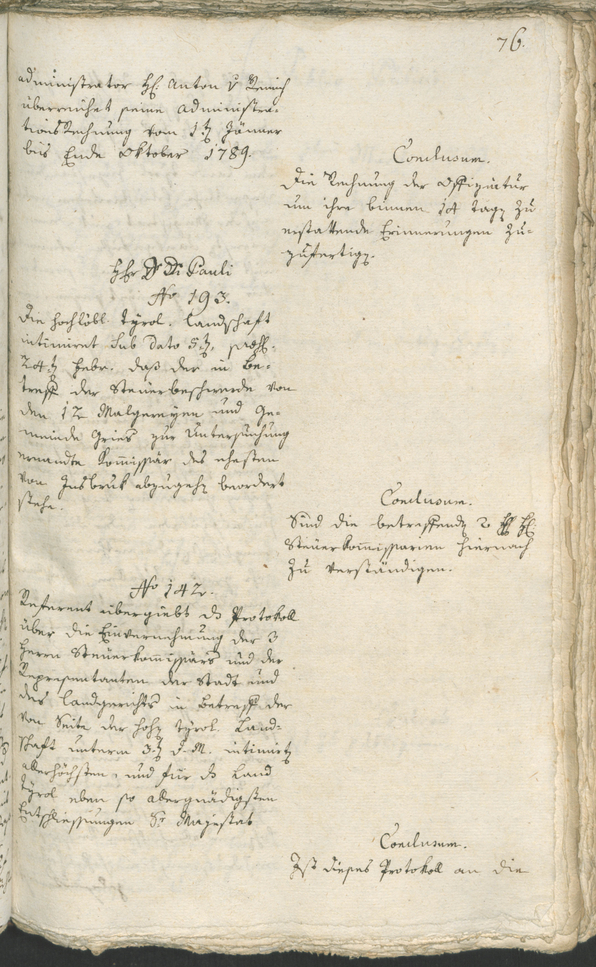 76.
administrator H: Anton v
überreichet seine Administra-
tions Rechnung vom 1t Jänner
bis Ende Oktober 1789.
Conclusum.
Die Rechnung der Offiziatur
um ihre binnen 14 tagen zu
erstattende Erinnerungen zu-
zufertigen.
Hr Dr Di Pauli
No 193.
Die hochlöbl. tyrol. Landschaft
intimirt sub dato 5t,
24t Febr. daß der in Be-
treff der Steuerbeschwerde von
den 12 Malgereyen und Ge-
meinde Gries zur Untersuchung
ernandte Kommissär des ehesten
von Insbruk abzugehen beordert
stehe.
Conclusum.
Sind die betreffenden 2 HH
Steuerkommissarien hiernach
zu verständigen.
No 142.
Referent übergiebt ds Protokoll
über die Einvernehmung der 3
Herrn Steuerkommissärs und der
Repraesentanten der Stadt und
des Landgerichts in Betreff der
von Seite der hohen tyrol. Land-
schaft unterm 3t d. M. intimirten
allerhöchsten, und für ds Land
Tyrol eben so allergnädigsten
Entschliessungen Sr Majestät
Conclusum.
Ist dieses Protokoll an die